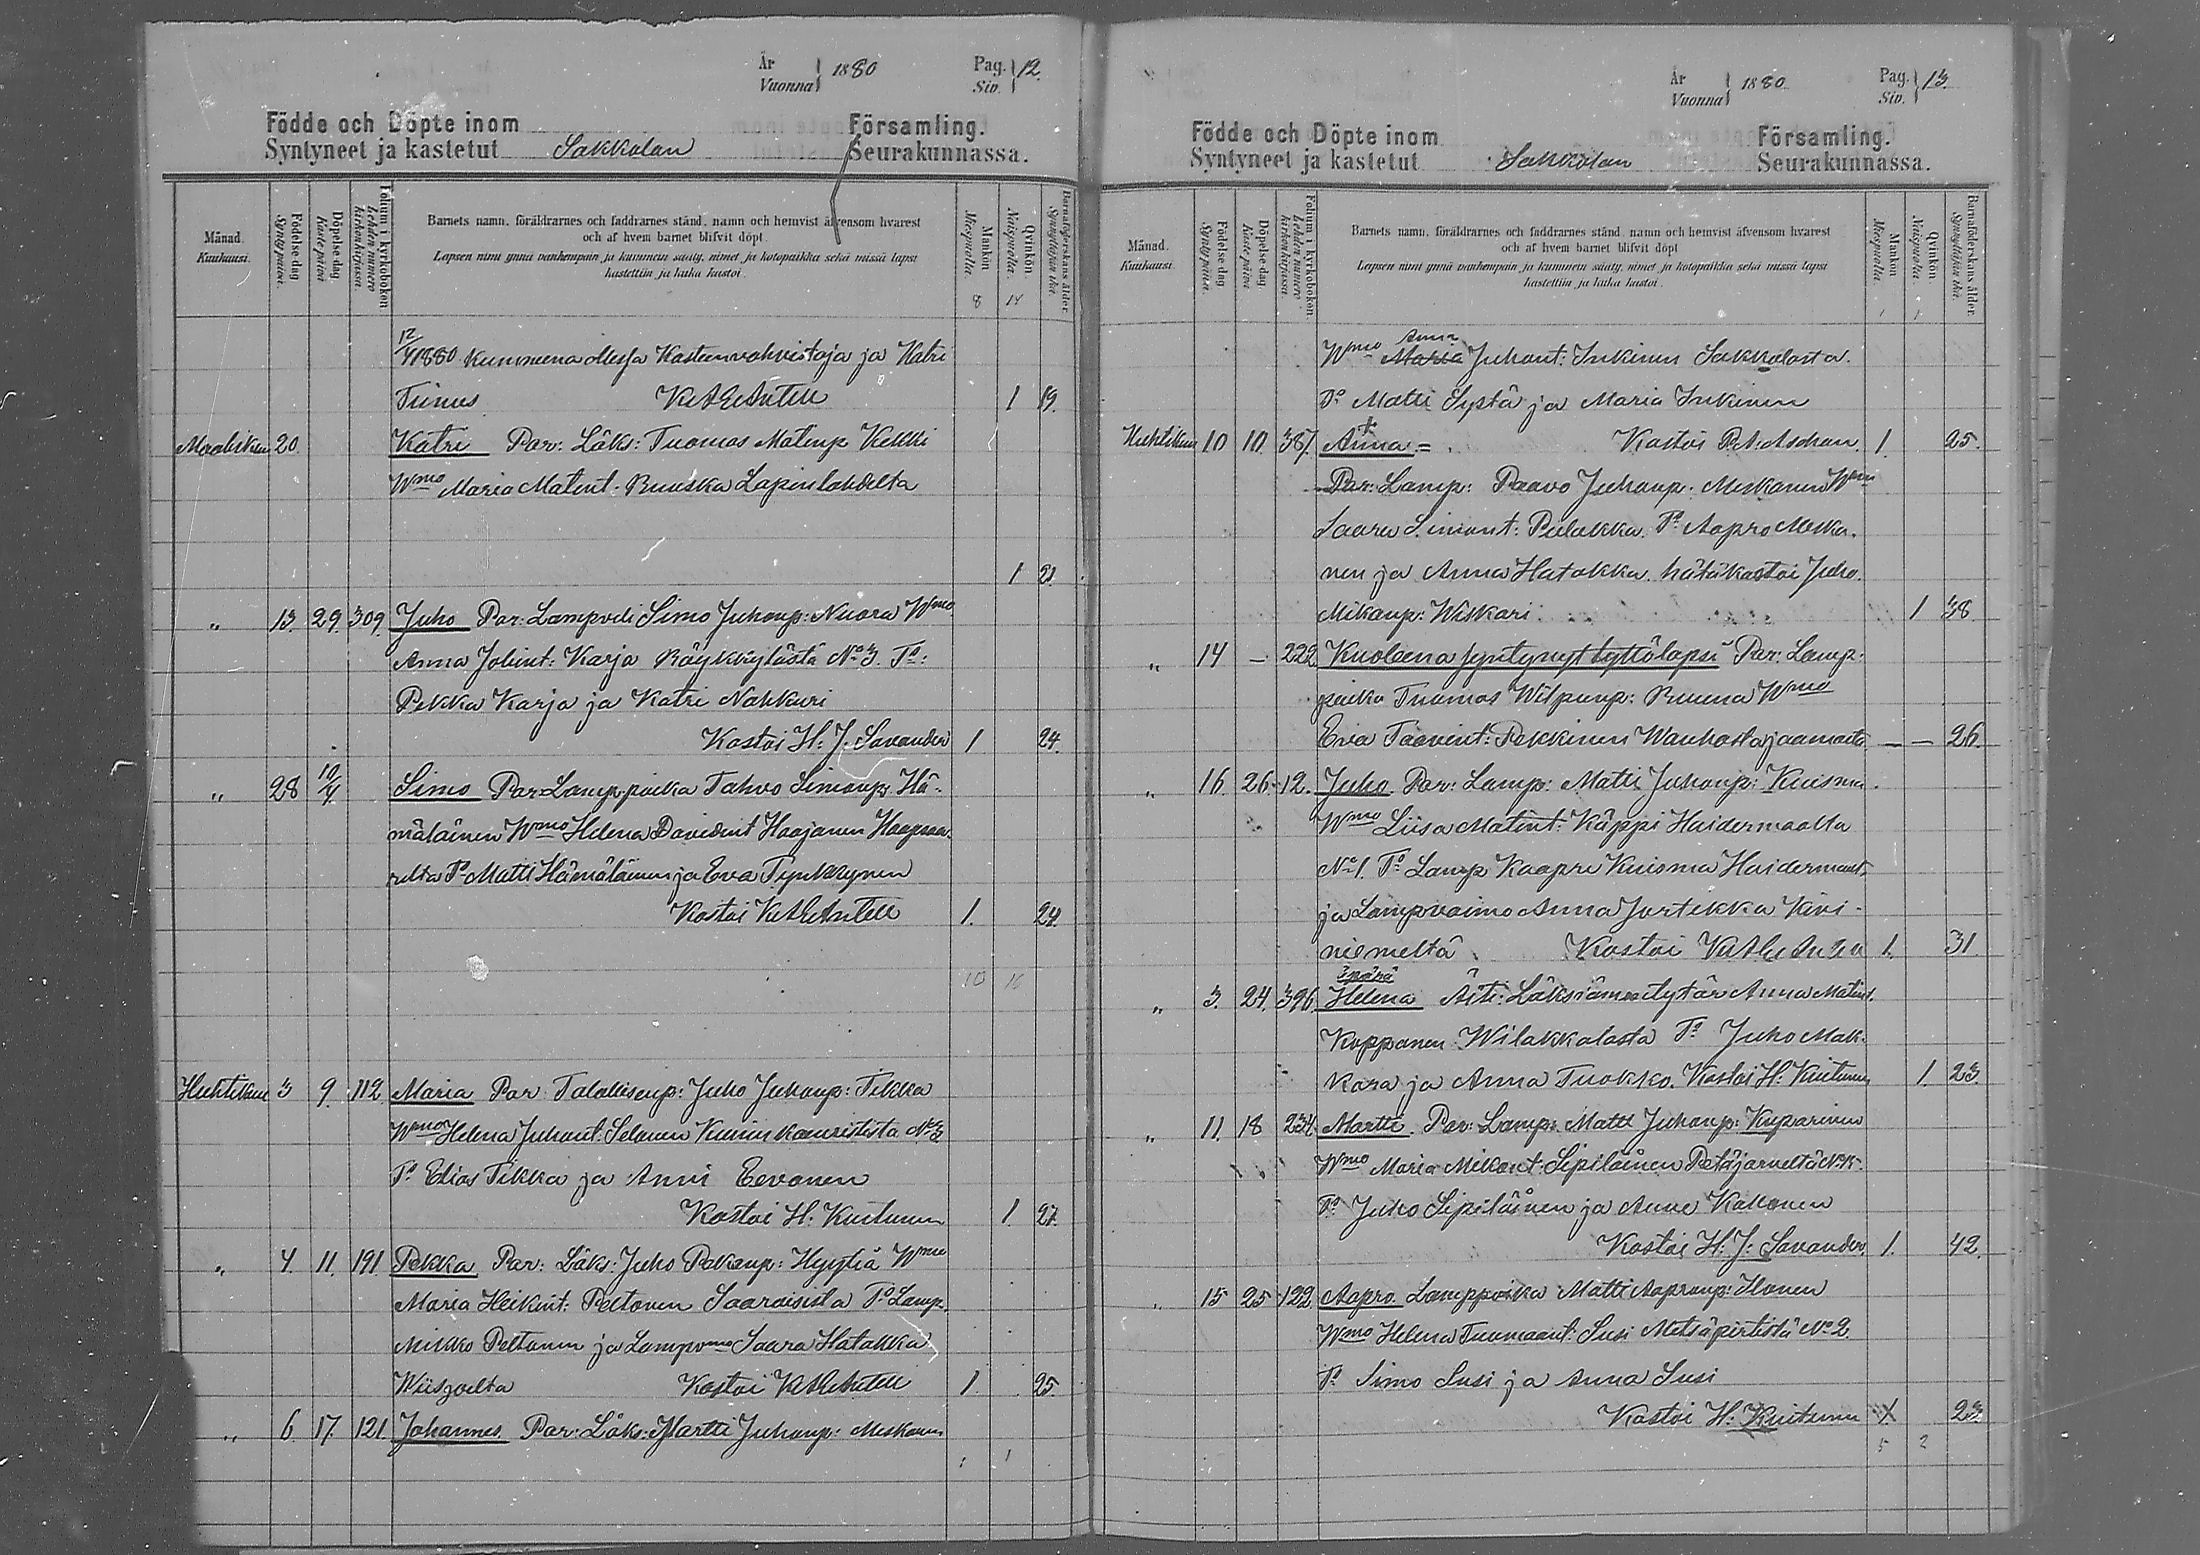 År
Vuonna 1880 Pag. Siv. 12.
Födde och Döpte inom Församling.
Syntyneet ja kastetut Sakkolan Seurakunnassa.
Månad. Kuukausi.
Födelse-dag Syntypäivä.
Döpelse-dag. Kastepäivä
Folium i kyrkoboken Lehden numero kirkonkirjassa
Barnets namn, föräldrarnes och faddrarnes stånd, namn och hemvist äfvensom hvarest
och af hvem barnet blifvit döpt.
Lapsen nimi ynnä vanhempain ja kummein sääty, nimet ja kotopaikka sekä missä lapsi
kastettiin ja kuka kastoi.
Mankön Miespuolia.
Qvinkön. Naispuolia.
Barnaföderskans ålder. Synnyttäjän ikä.
8 14
12/4 1880 kummeena ollessa Kasteenvahvistaja ja Katri
1 19.
Maaliskuu 20. Katri Par: Läks: Tuomas Matinp. Kekki
Wmo Maria Matint: Ruuska Lapinlahdelta
1 21.
„ 13. 29. 309. Juho Par: Lampvuodi Simo Juhonp: Nuora Wmo
Anna Johint: Karja Röykkylästä No 3. To:
Pekka Karja ja Katri Nahkuri
Kastoi H: J: Savander 1 24.
„ 28 10/4 Simo Par: Lamp.poika Tahvo Simonp: Hä-
mäläinen Wmo Helena Davidint Haajanen Haapsaa-
relta To Matti Hämäläinen ja Eva Tynkkynen
Kastoi 1. 24.
10 16
Huhtikuu 3 9. 112 Maria Par: Talollisenp: Juho Juhonp: Tikka
Wmo Helena Juhont: Selonen No 3
To Elias Tikka ja Anni Eevonen
Kastoi H: Kuitunen 1. 27.
„ 4. 11. 191 Pekka Par: Läks: Juho Pekanp: Hyytiä Wmo
Maria Heikint: Peltonen Saaroisista To Lamp.
Mikko Peltonen ja Lampvmo Saara Hatakka
Wiisjoelta Kastoi 1 25.
„ 6 17. 121. Johannes Par: Läks: Martti Juhonp: Meskanen
År
Vuonna 1880 Pag. Siv. 13.
Födde och Döpte inom Församling.
Syntyneet ja kastetut Sakkolan Seurakunnassa.
Månad. Kuukausi.
Födelse-dag Syntypäivä.
Döpelse-dag Kastepäivä
Folium i kyrkoboken. Lehden numero kirkonkirjassa
Barnets namn, föräldrarnes och faddrarnes stånd, namn och hemvist äfvensom hvarest
och af hvem barnet blifvit döpt
Lapsen nimi ynnä vanhempain ja kummein sääty, nimet ja kotopaikka sekä missä lapsi
kastettiin ja kuka kastoi.
Mankön Miespuolia.
Qvinkön. Naispuolia.
Barnaföderskans ålder. Synnyttäjän ikä.
Anna
Wmo Maria Juhont: Inkinen Sakkolasta.
To Matti Systä ja Maria Inkinen
Huhtikuu 10 10. 387. Anna = Kastoi 1. 25.
Par: Lamp: Paavo Juhonp: Meskanen Wmo
Saara Simont: Pulakka. To Aapro Meska-
nen ja Anna Hatakka. hätäkastoi Juho
Mikonp: Wiskari 1 38
„ 14 – 222. Kuolleena syntynyt tyttölapsi Par: Lamp:
poika Tuomas Wilpunp: Ruuna Wmo
Eva Taavint: Pekkinen — — 26.
„ 16. 26. 12. Juho Par: Lamp: Matti Juhonp: Kuisma
Wmo Liisa Matint: Käppi Haidermaalta
No 1. To Lamp Kaapre Kuisma Haidermaat.
ja Lampvaimo Anna Jortikka Kivi-
niemeltä Kastoi 1. 31.
äpärä
„ 3. 24. 396. Helena Äiti: Anna Matint.
Kopponen Wilakkalasta To Juho Mak-
kara ja Anna Tuokko. Kastoi H: Kuitunen 1. 23.
„ 11. 18 234. Martti Par: Lamp: Matti Juhonp: Kuparinen
Wmo Maria Mikont: Sipiläinen Petäjärveltä
To Juho Sipiläinen ja Anne Kakonen
Kastoi H: J: Savander. 1. 42.
„ 15 25 122. Aapro. Lamppoika Matti Aapronp: Ilonen
Wmo Helena Tuomaant: Susi Metsäpirtistä No 2.
To Simo Susi ja Anna Susi
Kastoi H: Kuitunen 1 23.
5 2